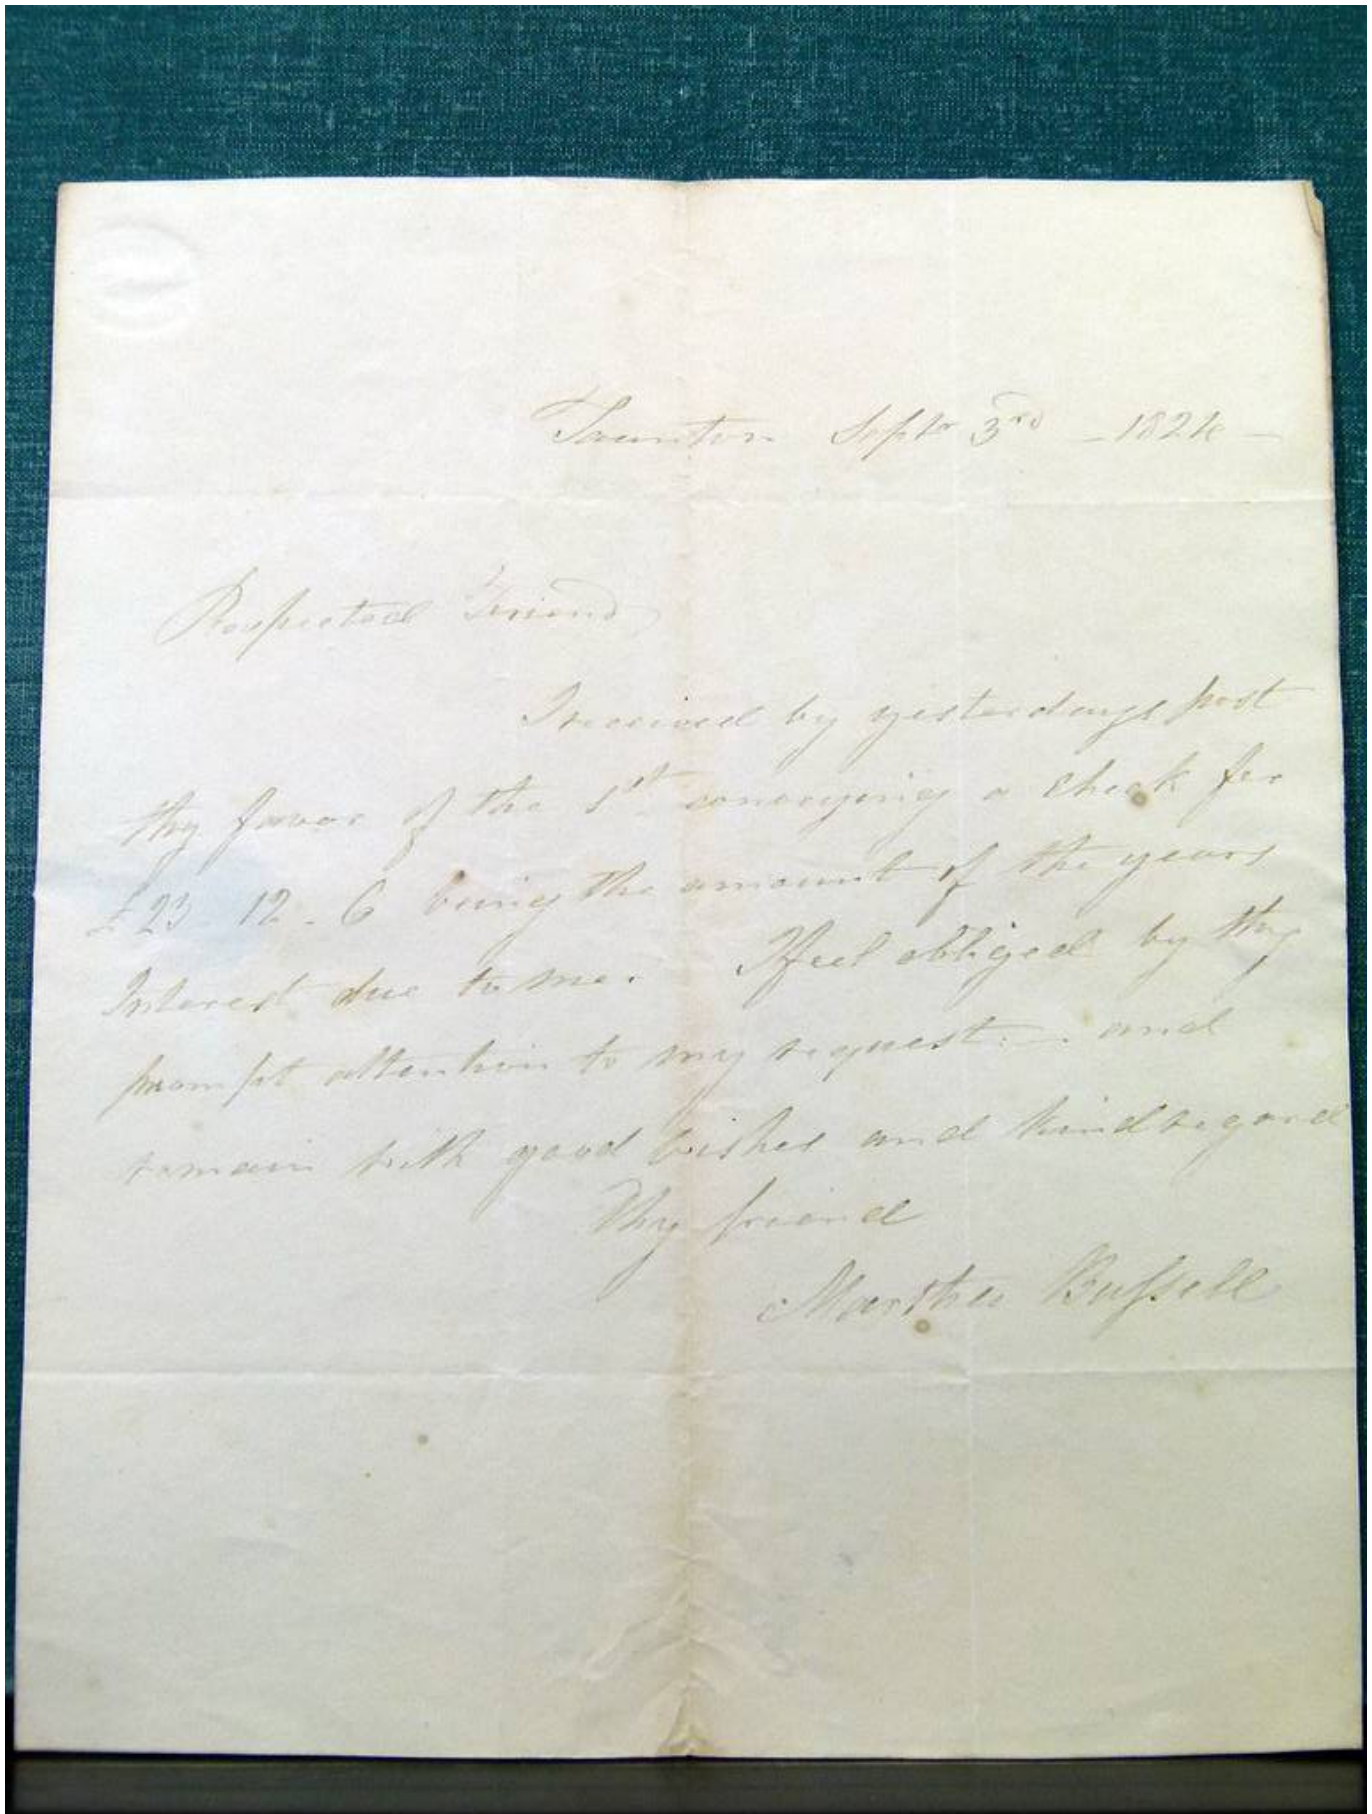 Taunton Septr 3rd – 1824 –
Respected Friend
I received by yesterdays post
thy favor of the 1st conveying a Check for
£23 12 - 6 being the amount of the years
Interest due to me. I feel obliged by thy
prompt attention to my request. – and
remain with good wishes and kind regard
Thy friend
Martha Bussell